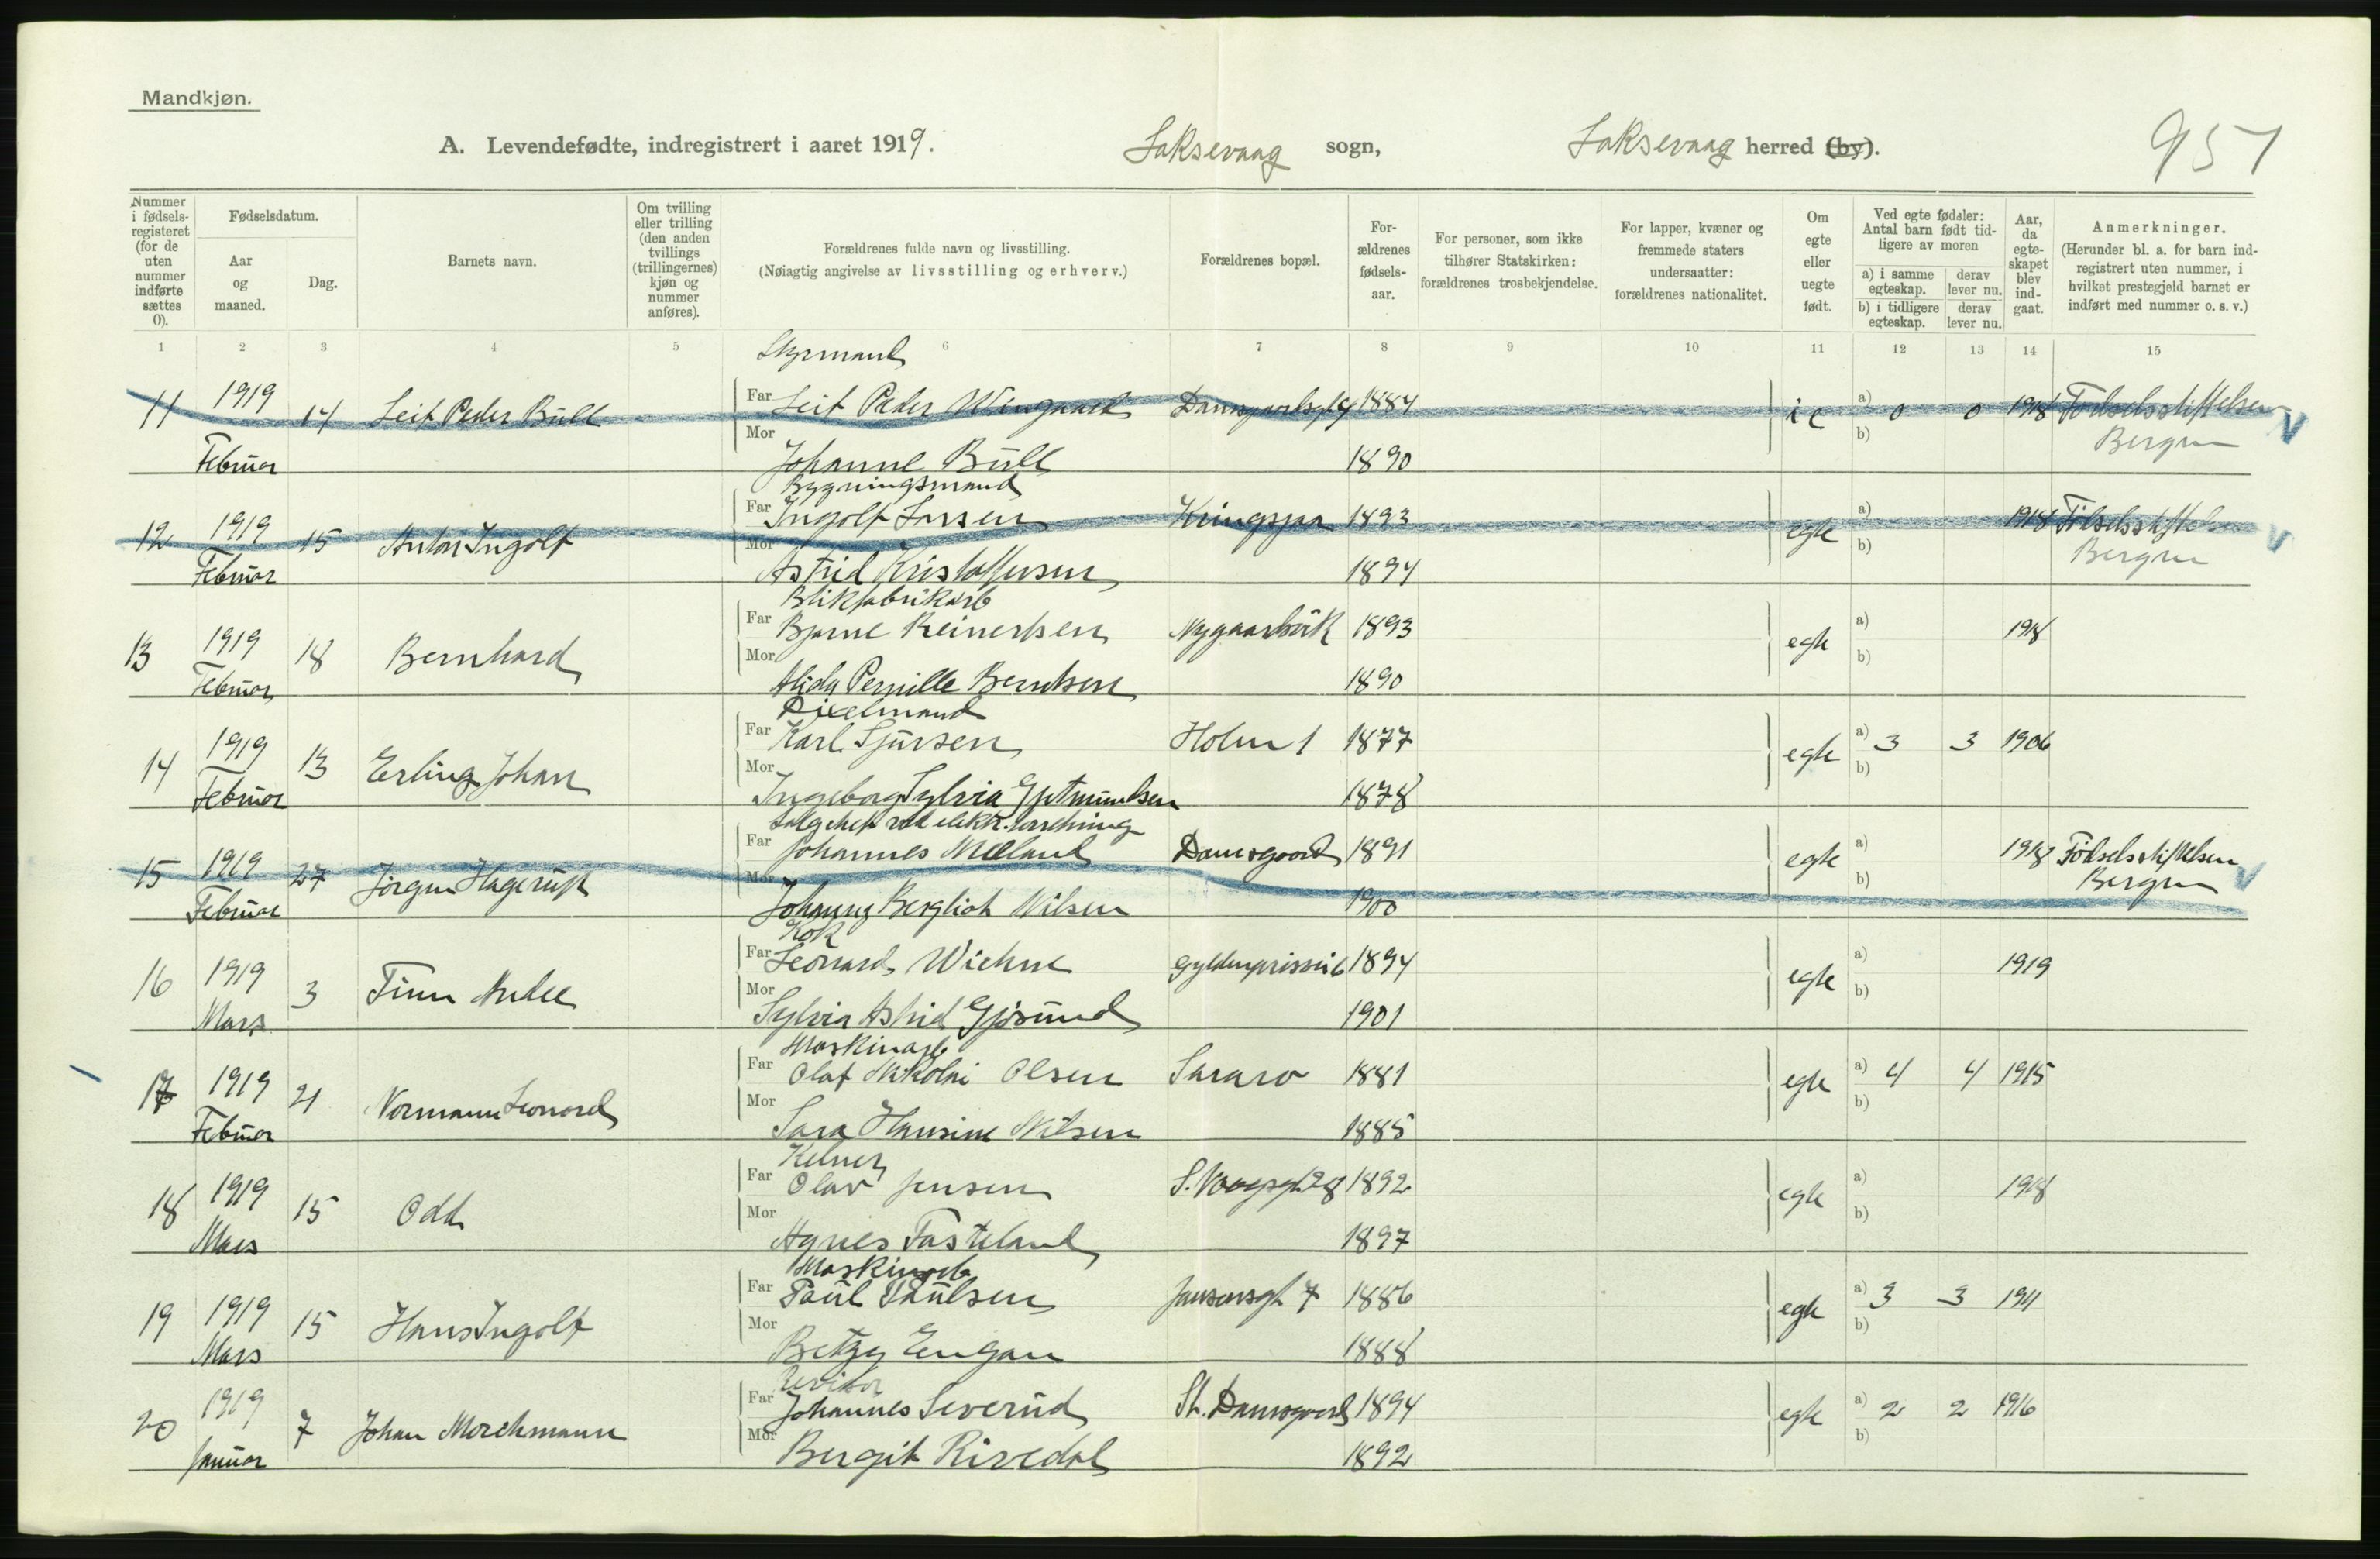 Mandkjøn.
A. Levendefødte, indregistrert i aaret 1919. Laksevaag sogn, Laksevaag herred (by). 951
Nummer i fødsels-registeret (for de uten nummer indførte sættes 0).
Fødselsdatum.
Aar og maaned.
Dag.
Barnets navn.
Om tvilling eller trilling (den anden tvillings (trillingernes) kjøn og nummer anføres).
Forældrenes fulde navn og livsstilling.
(Nøiagtig angivelse av livsstilling og erhverv.)
Forældrenes bopæl.
For-ældrenes fødsels-aar.
For personer, som ikke tilhører Statskirken: forældrenes trosbekjendelse.
For lapper, kvæner og fremmede staters undersaatter: forældrenes nationalitet.
Om egte eller uegte født.
Ved egte fødsler: Antal barn født tid-ligere av moren
a) i samme egteskap. derav lever nu.
b) i tidligere egteskap. derav lever nu.
Aar, da egte-skapet blev ind-gaat.
Anmerkninger.
(Herunder bl. a. for barn ind-registrert uten nummer, i hvilket prestegjeld barnet er indført med nummer o. s. v.)
1 2 3 4 5 6 7 8 9 10 11 12 13 14 15
Styrmand
11 1919 14 Leif Peder Bull Far Leif Peder Wingaard 1884 a) 0 0 1918 Fødselsstiftelsen
Februar Mor Johanne Bull 1890 b) Bergen
Bygningsmand
12 1919 15 Anton Ingolf Far Ingolf Larsen Kringsjaa 1893 egte a) 1918 Fødselsstiftelsen
Februar Mor Astrid Kristoffersen 1894 b) Bergen
Blikfabrikarb
13 1919 18 Bernhard Far Bjarne Reinertsen 1893 egte a) 1918
Februar Mor Alida Pernille Berntsen 1890 b)
Dixelmand
14 1919 13 Erling Johan Far Karl Sjursen Holen 1 1877 egte a) 3 3 1906
Februar Mor Ingeborg Sylvia 1878 b)
Salgchef ved elektr. forretning
15 1919 27 Jørgen Hagerup Far Johannes Mæland Damsgaard 1891 egte a) 1918 Fødselsstiftelsen
Februar Mor Johanna Bergliot Nilsen 1900 b) Bergen
Kok
16 1919 3 Finn Far Leonard Wiehne 1894 egte a) 1919
Mars Mor Sylvia Astrid Gjøsund 1901 b)
Maskinarb
17 1919 21 Normann Leonard Far Olaf Nikolai Olsen 1881 egte a) 4 4 1915
Februar Mor Sara Hansine Nilsen 1885 b)
Kelner
18 1919 15 Odd Far Olav Jensen 1892 egte a) 1918
Mars Mor Agnes Tasteland 1897 b)
Maskinarb
19 1919 15 Hans Ingolf Far Paul Paulsen Jansensgt 7 1886 egte a) 3 3 1911
Mars Mor Betzy Engan 1888 b)
Revisor
20 1919 7 Johan Morchmann Far Johannes Severud St. Damsgaard 1894 egte a) 2 2 1916
Januar Mor Bergit Rivedal 1892 b)